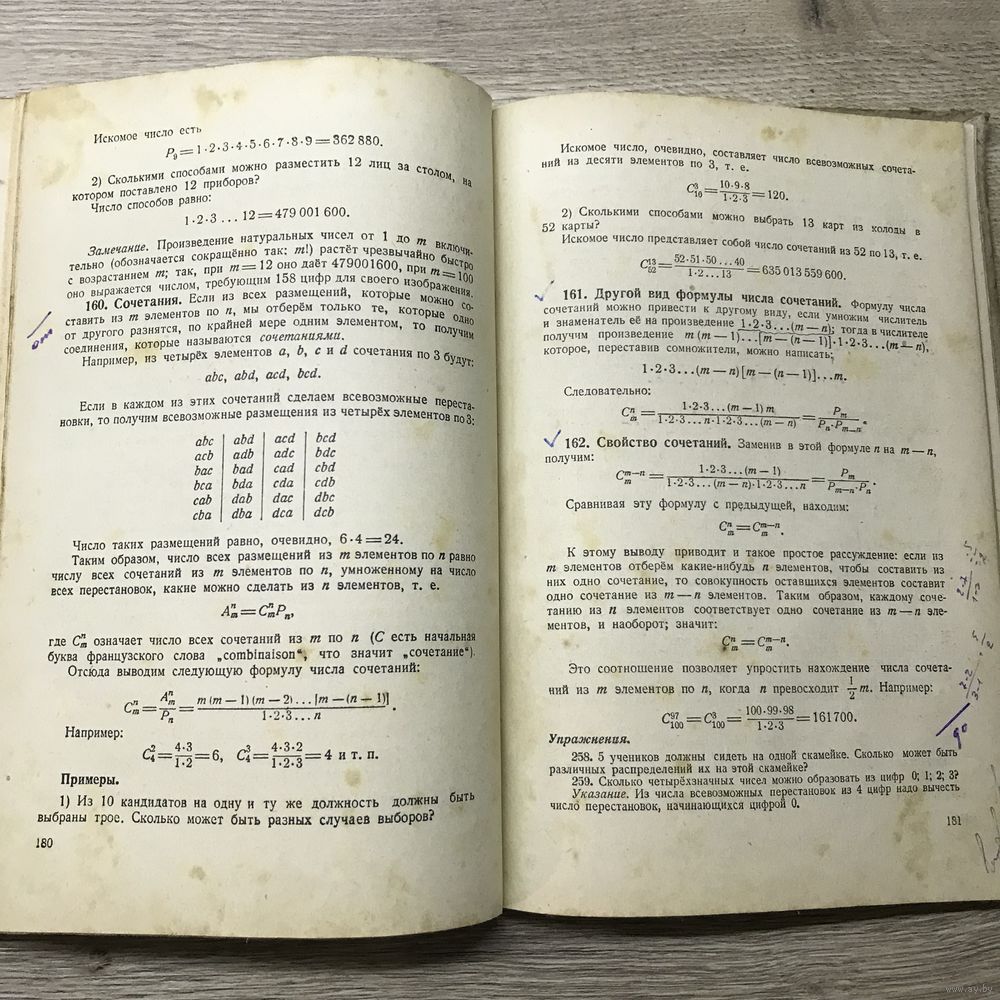 Искомое число есть
P₉ = 1·2·3·4·5·6·7·8·9 = 362 880.
2) Сколькими способами можно разместить 12 лиц за столом, на
котором поставлено 12 приборов?
Число способов равно:
1·2·3 ... 12 = 479 001 600.
Замечание. Произведение натуральных чисел от 1 до m включи-
тельно (обозначается сокращённо так: m!) растёт чрезвычайно быстро
с возрастанием m; так, при m = 12 оно даёт 479001600, при m = 100
оно выражается числом, требующим 158 цифр для своего изображения.
160. Сочетания. Если из всех размещений, которые можно со-
ставить из m элементов по n, мы отберём только те, которые одно
от другого разнятся, по крайней мере одним элементом, то получим
соединения, которые называются сочетаниями.
Например, из четырёх элементов a, b, c и d сочетания по 3 будут:
abc, abd, acd, bcd.
Если в каждом из этих сочетаний сделаем всевозможные переста-
новки, то получим всевозможные размещения из четырёх элементов по 3:
abc | abd | acd | bcd
acb | adb | adc | bdc
bac | bad | cad | cbd
bca | bda | cda | cdb
cab | dab | dac | dbc
cba | dba | dca | dcb
Число таких размещений равно, очевидно, 6·4 = 24.
Таким образом, число всех размещений из m элементов по n равно
числу всех сочетаний из m элементов по n, умноженному на число
всех перестановок, какие можно сделать из n элементов, т. е.
Aₘⁿ = CₘⁿPₙ,
где Cₘⁿ означает число всех сочетаний из m по n (C есть начальная
буква французского слова „combinaison“, что значит „сочетание“).
Отсюда выводим следующую формулу числа сочетаний:
Cₘⁿ = Aₘⁿ/Pₙ = m (m — 1) (m — 2) ... [m — (n — 1)] / 1·2·3 ... n.
Например:
C₄² = 4·3/1·2 = 6, C₄³ = 4·3·2/1·2·3 = 4 и т. п.
Примеры.
1) Из 10 кандидатов на одну и ту же должность должны быть
выбраны трое. Сколько может быть разных случаев выборов?
180
Искомое число, очевидно, составляет число всевозможных сочета-
ний из десяти элементов по 3, т. е.
C₁₀³ = 10·9·8/1·2·3 = 120.
2) Сколькими способами можно выбрать 13 карт из колоды в
52 карты?
Искомое число представляет собой число сочетаний из 52 по 13, т. е.
C₅₂¹³ = 52·51·50 ... 40/1·2 ... 13 = 635 013 559 600.
161. Другой вид формулы числа сочетаний. Формулу числа
сочетаний можно привести к другому виду, если умножим числитель
и знаменатель её на произведение 1·2·3...(m — n); тогда в числителе
получим произведение m (m — 1)...[m — (n — 1)]·1·2·3...(m — n),
которое, переставив сомножители, можно написать:
1·2·3...(m — n) [m — (n — 1)]...m.
Следовательно:
Cₘⁿ = 1·2·3...(m — 1) m / 1·2·3...n·1·2·3...(m — n) = Pₘ/Pₙ·Pₘ₋ₙ.
162. Свойство сочетаний. Заменив в этой формуле n на m — n,
получим:
Cₘᵐ⁻ⁿ = 1·2·3...(m — 1) / 1·2·3...(m — n)·1·2·3...n = Pₘ/Pₘ₋ₙ·Pₙ.
Сравнивая эту формулу с предыдущей, находим:
Cₘⁿ = Cₘᵐ⁻ⁿ.
К этому выводу приводит и такое простое рассуждение: если из
m элементов отберём какие-нибудь n элементов, чтобы составить из
них одно сочетание, то совокупность оставшихся элементов составит
одно сочетание из m — n элементов. Таким образом, каждому соче-
танию из n элементов соответствует одно сочетание из m — n эле-
ментов, и наоборот; значит:
Cₘⁿ = Cₘᵐ⁻ⁿ.
Это соотношение позволяет упростить нахождение числа сочета-
ний из m элементов по n, когда n превосходит 1/2 m. Например:
C₁₀₀⁹⁷ = C₁₀₀³ = 100·99·98/1·2·3 = 161700.
Упражнения.
258. 5 учеников должны сидеть на одной скамейке. Сколько может быть
различных распределений их на этой скамейке?
259. Сколько четырёхзначных чисел можно образовать из цифр 0; 1; 2; 3?
Указание. Из числа всевозможных перестановок из 4 цифр надо вычесть
число перестановок, начинающихся цифрой 0.
181
до
www.ay.by